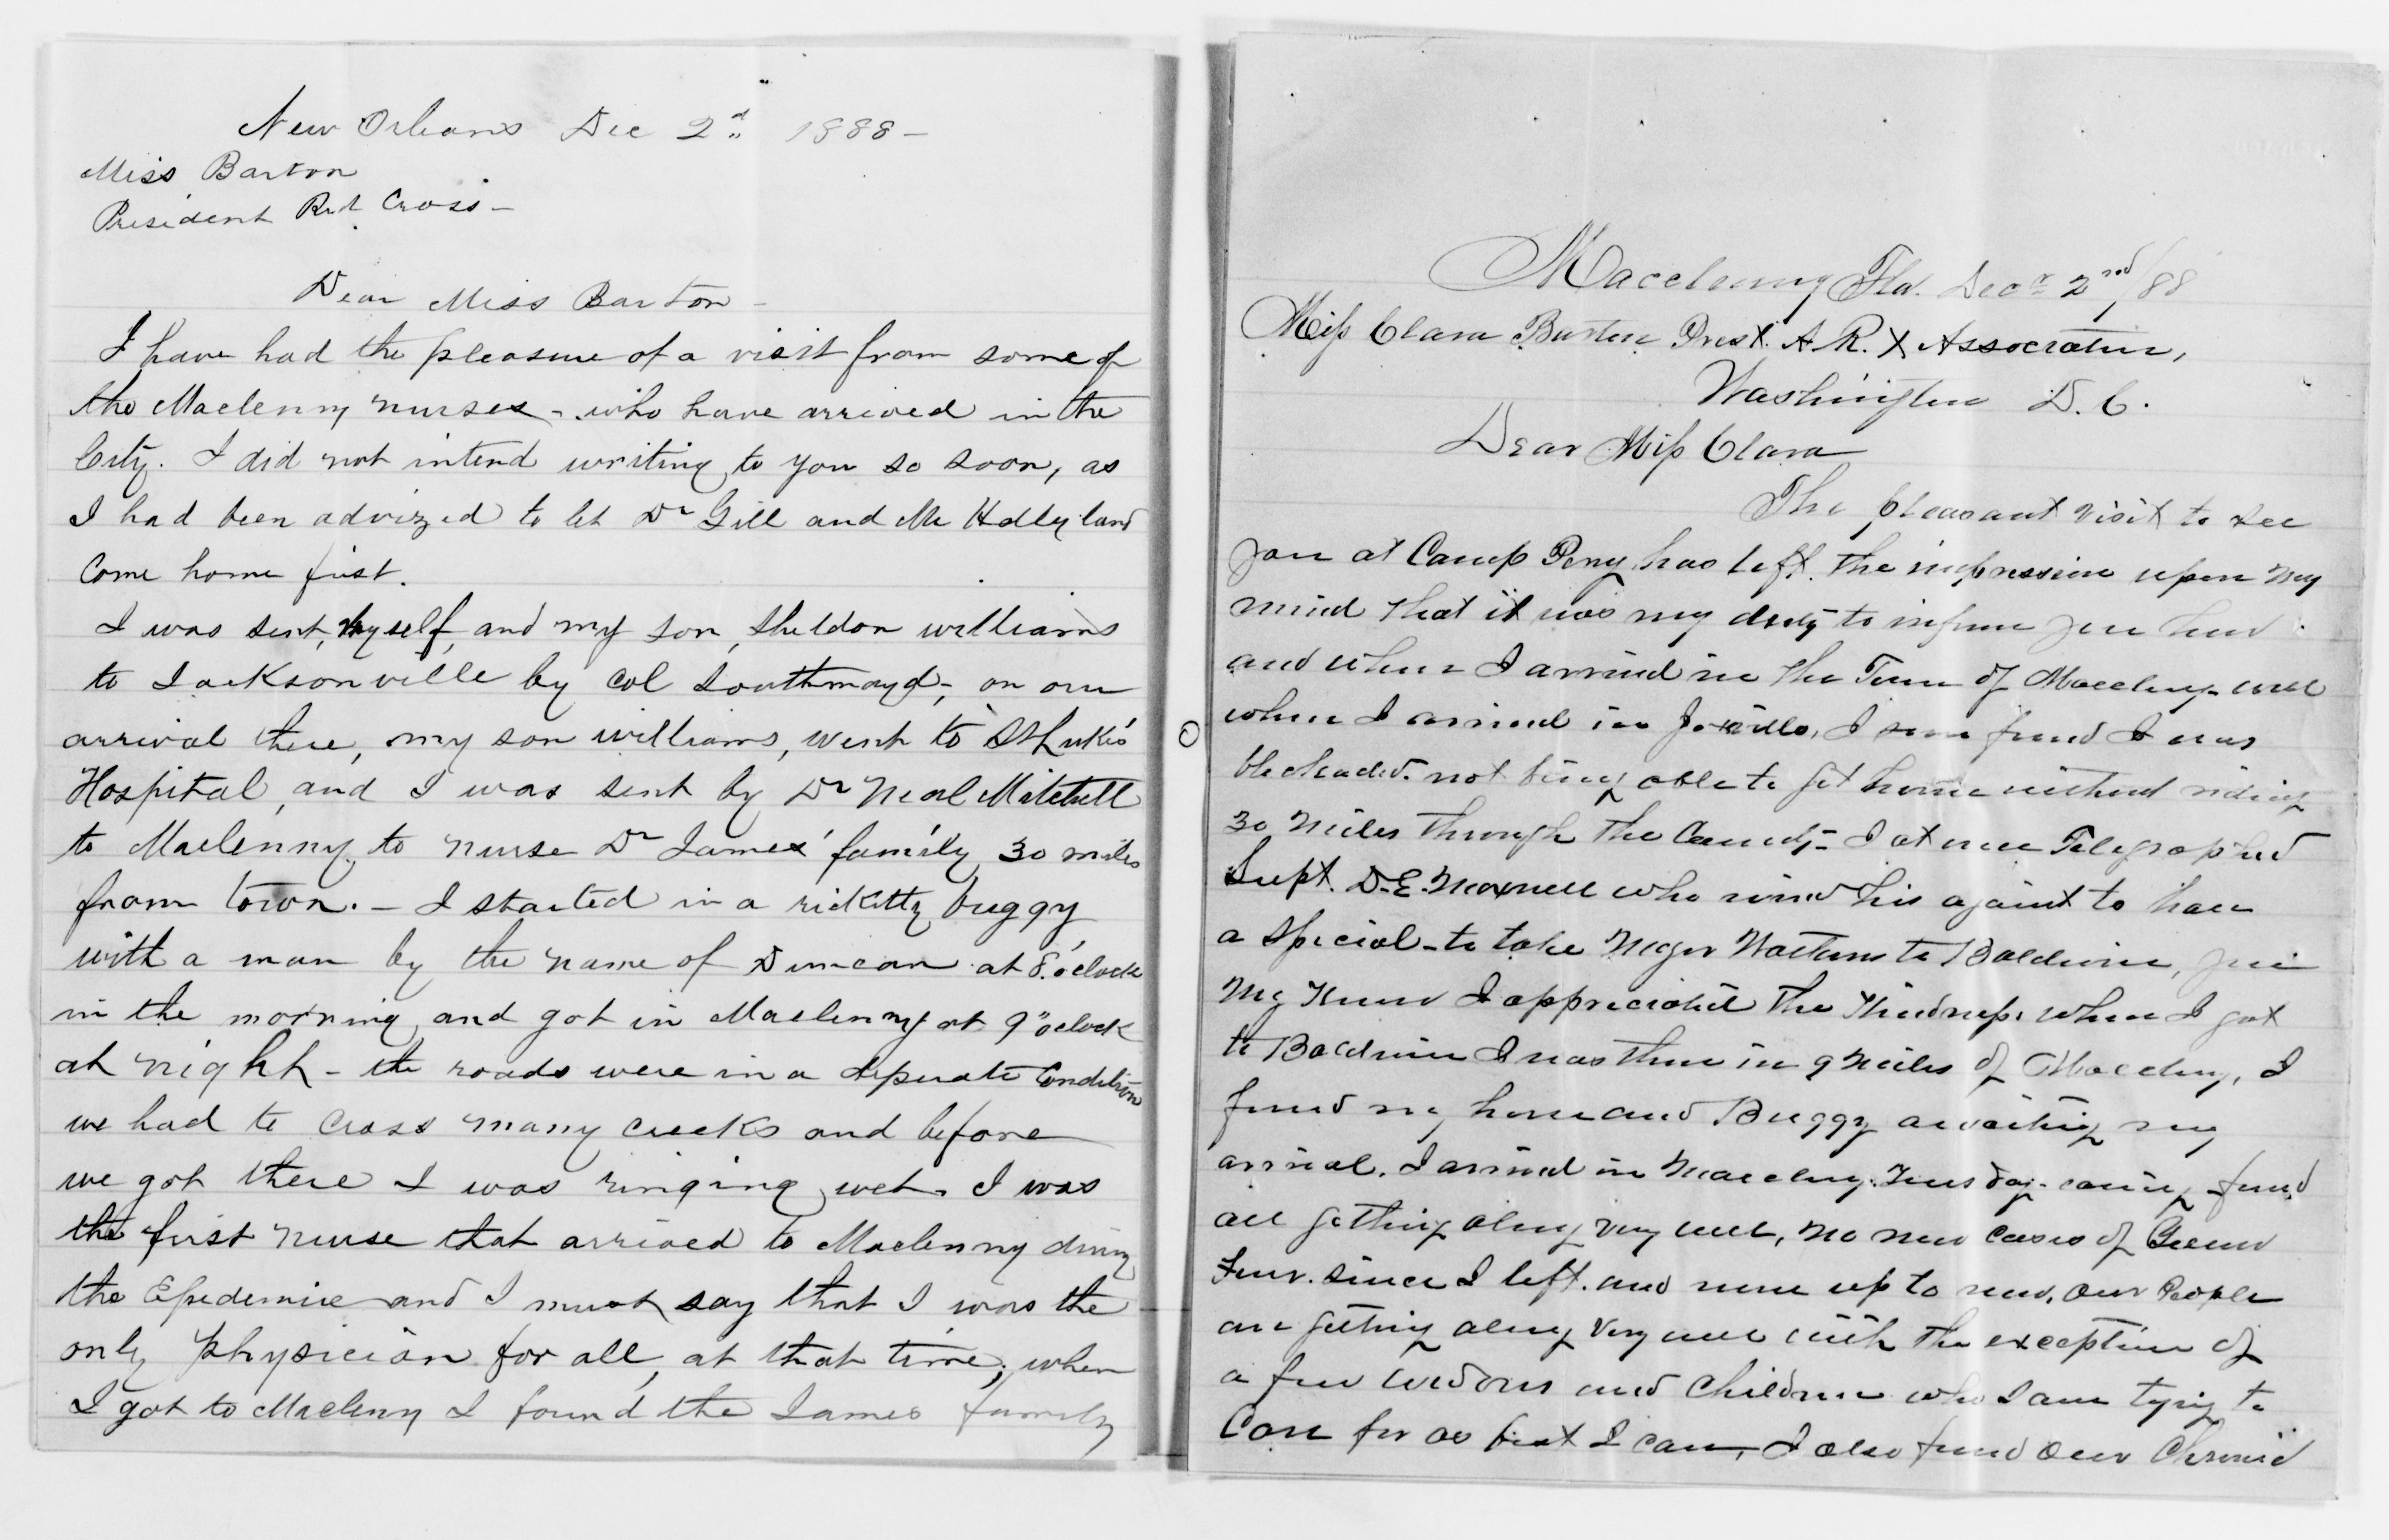 New Orleans Dec 2d 1888 -
Miss Barton
President Red Cross -
Dear Miss Barton -
I have had the pleasure of a visit from some of
the Maclenny nurses - who have arrived in the
City. I did not intend writing to you so soon, as
I had been advized to let Dr Gill and Mr
Come home first.
I was sent, myself, and my son, Sheldon williams
to Jacksonville by Col Southmayd -, on our
arrival there, my son williams, went to St Luke's
Hospital, and I was sent by Dr Neal Mitchell
to Maclenny to nurse Dr James' family 30 miles
from town. - I started in a ricketty buggy
with a man by the name of Duncan at 8. o'clock
in the morning and got in Maclenny at 9" oclock
at night - the roads were in a desperate Condition
we had to cross many creeks and before
we got there I was ringing wet. I was
the first nurse that arrived to Maclenny during
the Epedemic and I must say that I was the
only physician for all, at that time; when
I got to Maclenny I found the James family
Macclenny Fla. Decr 2nd/88
Miss Clara Barton Prest. A. R. X Association,
Washington D. C.
Dear Miss Clara
The pleasant visit to see
you at Camp Perry has left the impression upon my
mind that it was my duty to inform you how
and when I arrived in the Town of Macclenny well
when I arrived in Jaxville, I soon found I was
blockaded. not being able to get home without riding
30 miles through the County - I at once Telegraphed
Supt. D. E. Maxwell who wired his againt to have
a special - to take Major Watkins to Baldwin, you
may know I appreciated the Kindness, when I got
to Baldwin I was then in 9 miles of Macclenny, I
found my horse and Buggy awaiting my
arrival. I arrived in Macclenny found
all getting along very well, no new cases of
Fever. since I left. and none up to now, our People
are getting along very well with the exception of
a few widows and children who I am trying to
Care for as best I can, I also found our